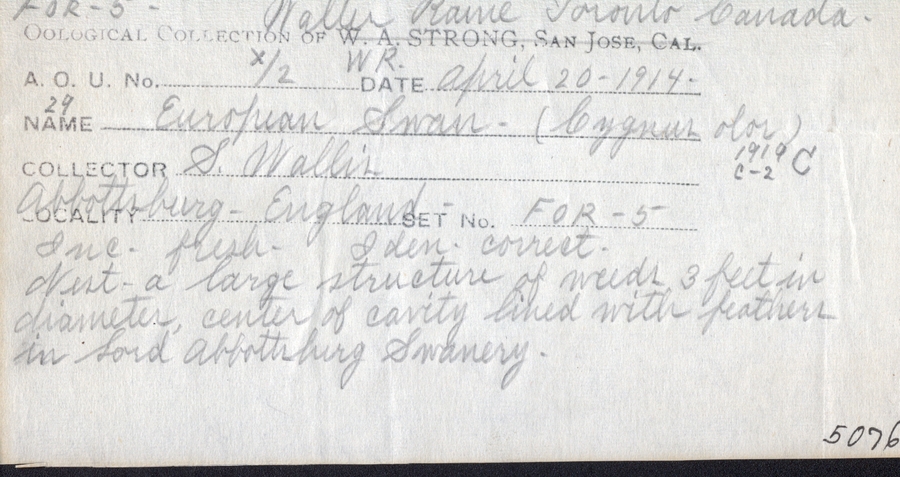 FOR-5- Walter Raine Toronto Canada.
OOLOGICAL COLLECTION OF W. A. STRONG, SAN JOSE, CAL.
x/2 W.R.
A. O. U. No. DATE April 20-1914-
29
NAME European Swan - (Cygnus olor)
COLLECTOR S. Wallis 1919 C
C-2
Abbottsburg - England -
LOCALITY SET No. FOR-5
Inc- fresh- Iden- correct.
Nest- a large structure of weeds 3 feet in
diameter, center of cavity lined with feathers
in Lord Abbottsburg Swanery.
5076